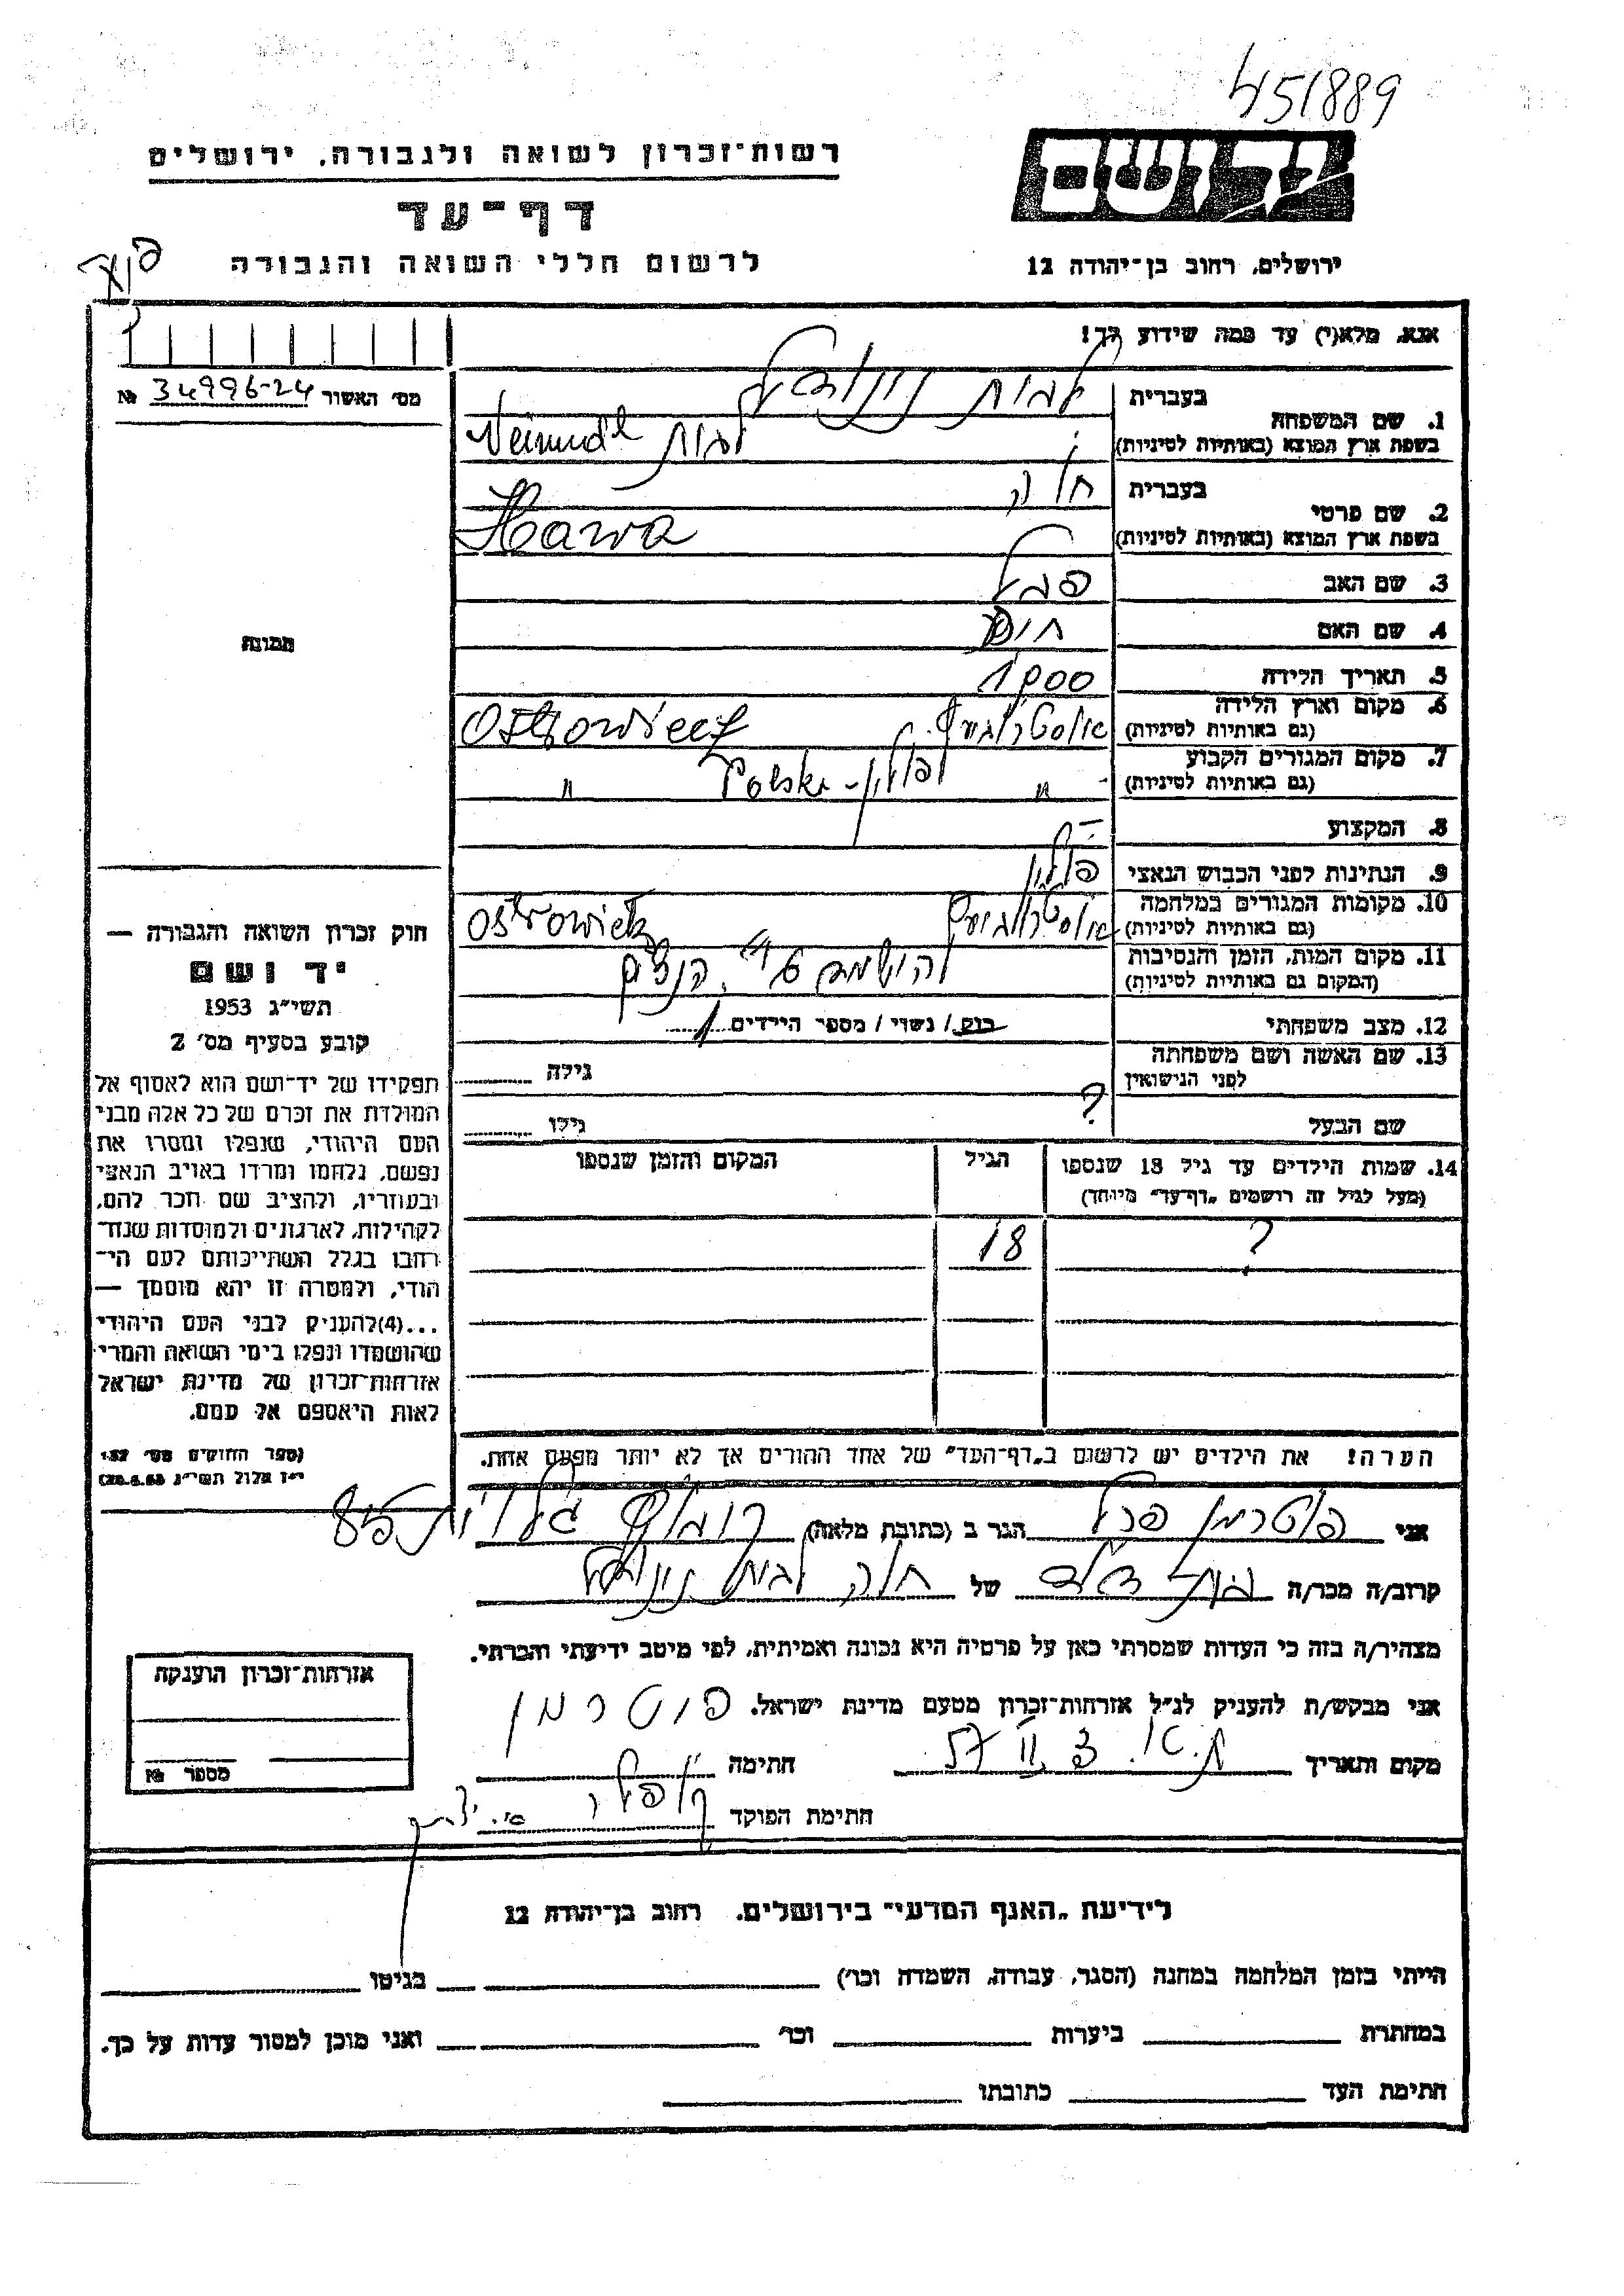 451889
יד ושם
ירושלים, רחוב בן־יהודה 12
רשות־זכרון לשואה ולגבורה, ירושלים
דף־עד
לרשום חללי השואה והגבורה
אנא, מלא(י) עד כמה שידוע לך!
מס׳ האשור № 34996-24
1. שם המשפחה
בעברית
בשפת ארץ המוצא (באותיות לטיניות)
2. שם פרטי
בעברית חוה
בשפת ארץ המוצא (באותיות לטיניות) Hawa
3. שם האב
4. שם האם
5. תאריך הלידה 1900
6. מקום וארץ הלידה
(גם באותיות לטיניות)
7. מקום המגורים הקבוע
(גם באותיות לטיניות) " פולין - Polska "
8. המקצוע —
9. הנתינות לפני הכבוש הנאצי פולין
10. מקומות המגורים במלחמה
(גם באותיות לטיניות) Ostrowiek
11. מקום המות, הזמן והנסיבות
(המקום גם באותיות לטיניות) הנאצים
12. מצב משפחתי רווק / נשוי / מספר הילדים 1
13. שם האשה ושם משפחתה
לפני הנישואין גילה
שם הבעל ? גילו
14. שמות הילדים עד גיל 18 שנספו
(מעל לגיל זה רושמים „דף־עד” מיוחד)
הגיל
המקום והזמן שנספו
? 18
הערה! את הילדים יש לרשום ב„דף־העד” של אחד ההורים אך לא יותר מפעם אחת.
תמונה
חוק זכרון השואה והגבורה —
יד ושם
תשי״ג 1953
קובע בסעיף מס׳ 2
תפקידו של יד־ושם הוא לאסוף אל
המולדת את זכרם של כל אלה מבני
העם היהודי, שנפלו ומסרו את
נפשם, נלחמו ומרדו באויב הנאצי
ובעוזריו, ולהציב שם וזכר להם,
לקהילות, לארגונים ולמוסדות שנח־
רבו בגלל השתייכותם לעם הי־
הודי, ולמטרה זו יהא מוסמך —
...(4)להעניק לבני העם היהודי
שהושמדו ונפלו בימי השואה והמרי
אזרחות־זכרון של מדינת ישראל
לאות היאספם אל עמם.
(ספר החוקים מס׳ 132
י״ז אלול תשי״ג 28.8.53)
אני פוטרמן הגר ב (כתובת מלאה) גלויות 85
קרוב/ה מכר/ה של חוה
מצהיר/ה בזה כי העדות שמסרתי כאן על פרטיה היא נכונה ואמיתית, לפי מיטב ידיעתי והכרתי.
אני מבקש/ת להעניק לנ״ל אזרחות־זכרון מטעם מדינת ישראל. פוטרמן
מקום ותאריך ת.א. 57 חתימה
חתימת הפוקד
אזרחות־זכרון הוענקה
מספר №
לידיעת „האגף המדעי” בירושלים, רחוב בן־יהודה 12
הייתי בזמן המלחמה במחנה (הסגר, עבודה, השמדה וכו׳) בגיטו
במחתרת ביערות וכו׳ ואני מוכן למסור עדות על כך.
חתימת העד כתובתו